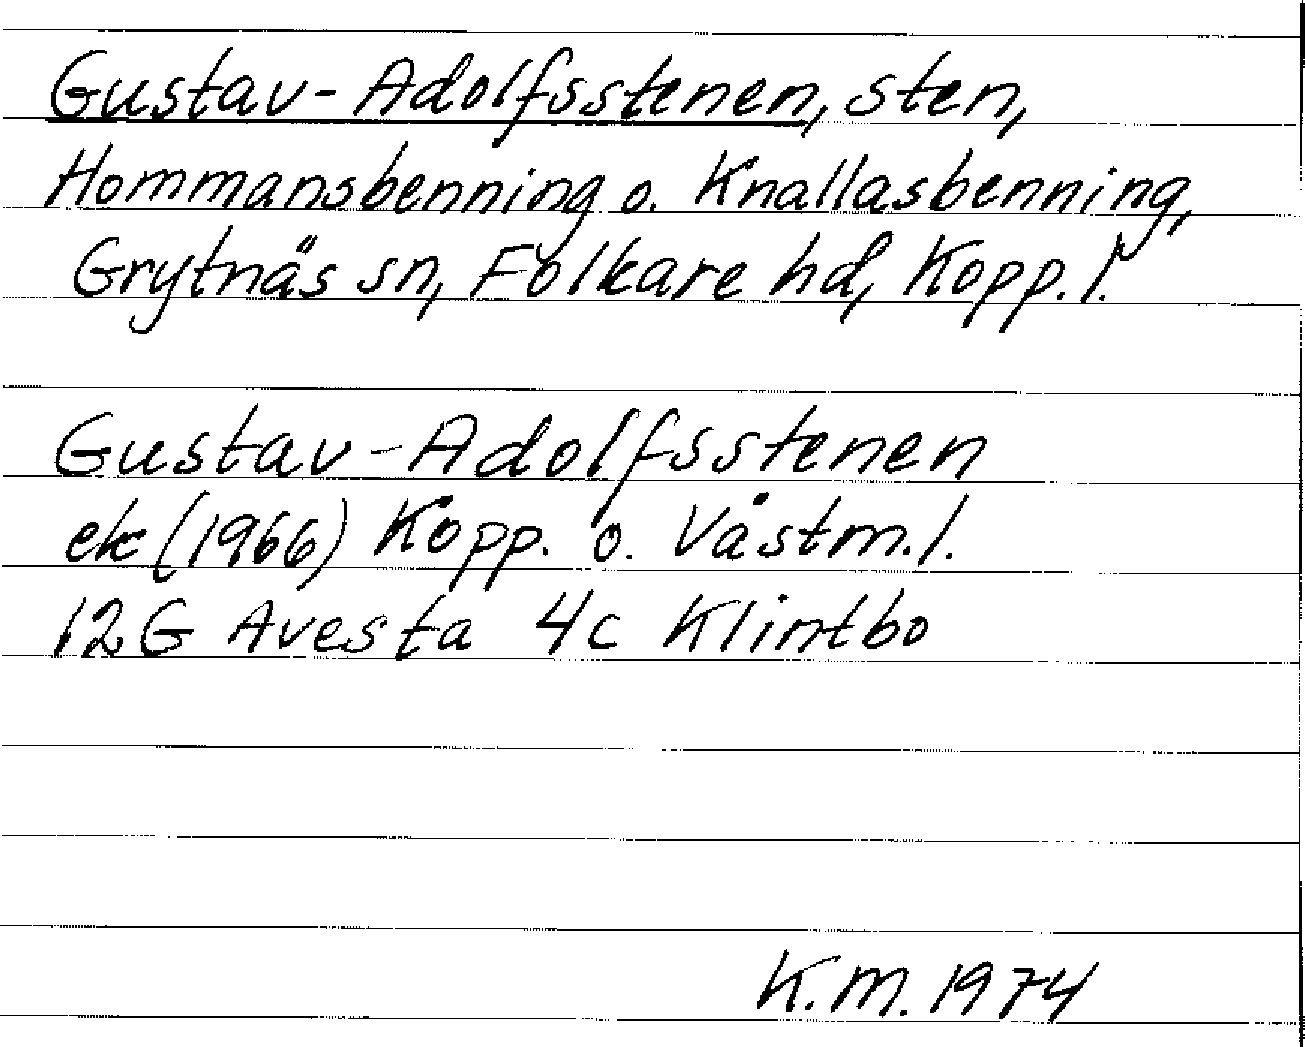 Gustav-Adolfsstenen, sten,
Hommansbenning o. Knallasbenning,
Grytnäs sn, Folkare hd, Kopp. l.
Gustav-Adolfsstenen
ek (1966) Kopp. o. Västm. l.
12G Avesta 4c Klintbo
K.M. 1974